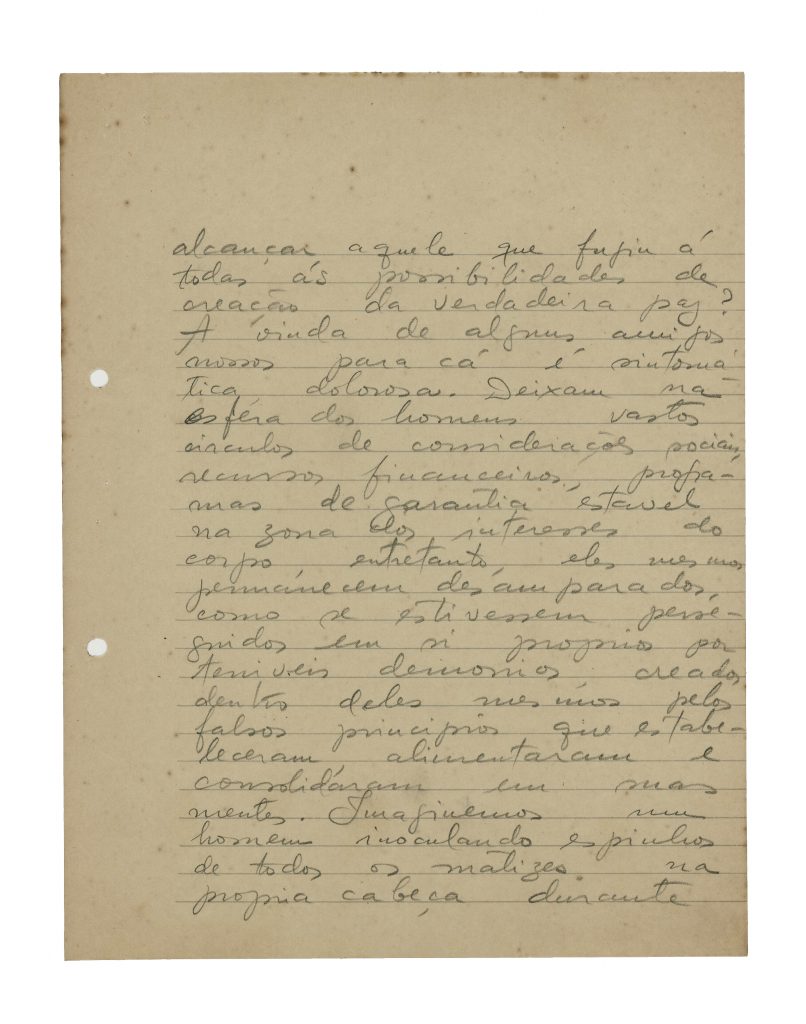 alcançar aquele que fugiu á
todas ás possibilidades de
creação da verdadeira paz?
A vinda de alguns amigos
nossos para cá é sintomá
tica dolorosa. Deixam na
esféra dos homens vastos
circulos de considerações sociais,
recursos financeiros, progra-
mas de garantia estavel
na zona dos interesses do
corpo, entretanto, eles mesmos
permánecem desamparados,
como se estivessem persé-
guidos em si proprios por
terriveis demonios creados
dentro deles mesmos pelos
falsos principios que estabe-
leceram, alimentaram e
consolidáram em suas
mentes. Imaginemos um
homem inoculando espinhos
de todos os matizes na
propria cabeça durante